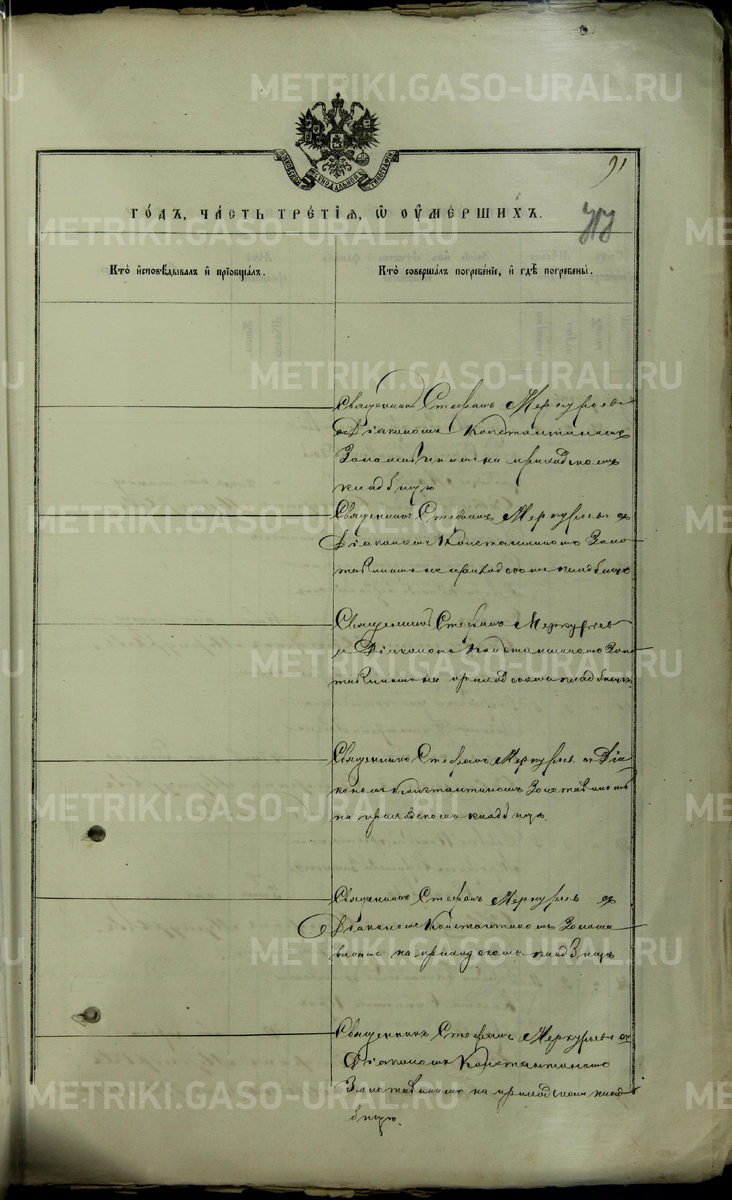 METRIKI.GASO-URAL.RU
91
ГОДЪ, ЧАСТЬ ТРЕТІЯ, Ѡ ОУМЕРШИХЪ.
Кто исповѣдывалъ и пріобщалъ.
Кто совершалъ погребеніе, и гдѣ погребены.
Священникъ Стефанъ Меркурьевъ
съ Діакономъ Константиномъ
на приходскомъ
кладбищѣ
Священникъ Стефанъ Меркурьевъ съ
Діакономъ Константиномъ Золо
тавинымъ на приходскомъ кладбищѣ
Священникъ Стефанъ Меркурьевъ
съ Діакономъ Константиномъ Золо
тавинымъ на приходскомъ кладбищѣ
Священникъ Стефанъ Меркурьевъ съ Діа
кономъ Константиномъ Золотавинымъ
на приходскомъ кладбищѣ.
Священникъ Стефанъ Меркурьевъ съ
Діакономъ Константиномъ Золота
винымъ на приходскомъ кладбищѣ
Священникъ Стефанъ Меркурьевъ съ
Діакономъ Константиномъ
Золотавинымъ на приходскомъ клад
бищѣ.